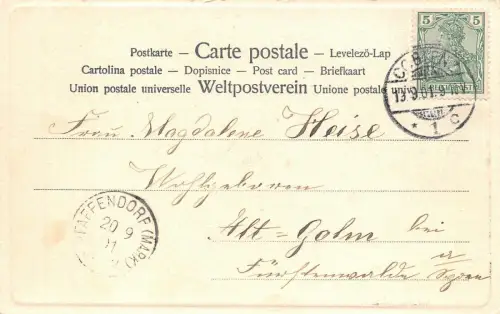 Postkarte – Carte postale – Levelezö-Lap
Cartolina postale – Dopisnice – Post card – Briefkaart
Union postale universelle Weltpostverein Unione postale univ
5 5
19.9.01.9
* 1 c
Frau Magdalene Heise
Wohlgeboren
Alt=Golm bei
Fürstenwalde a Spree
(MARK)
20 9
01